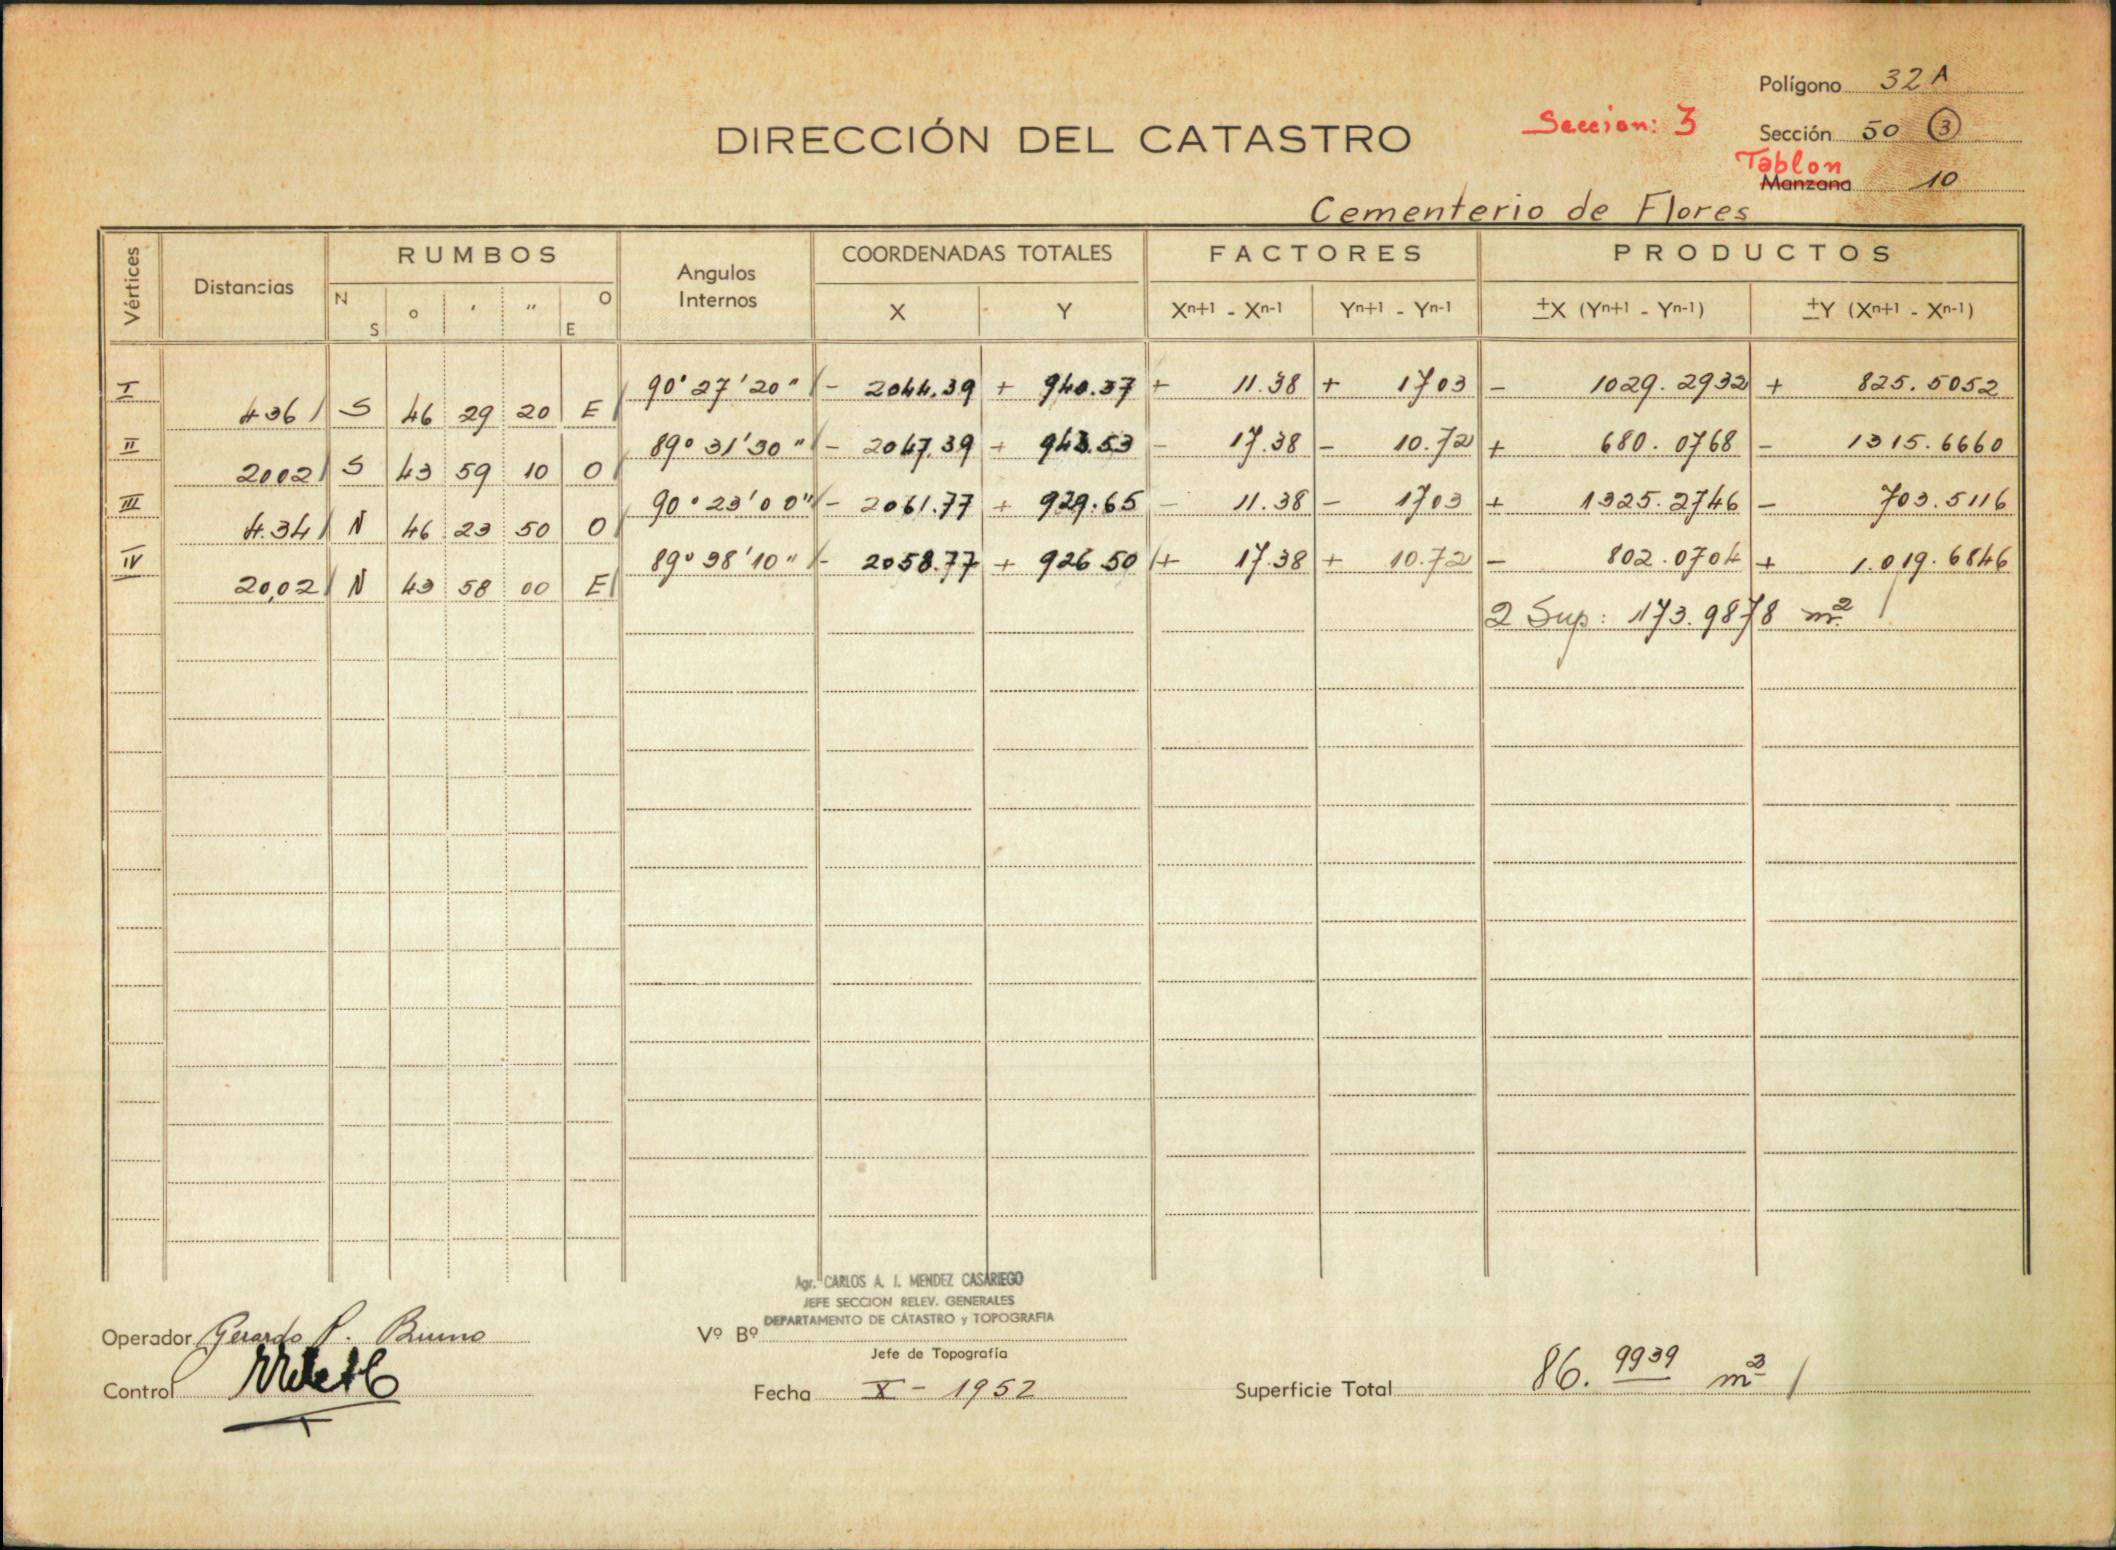 Polígono 32 A
DIRECCIÓN DEL CATASTRO
Seccion: 3
Sección 50 3
Tablon
Manzana 10
Cementerio de Flores
Vértices Distancias RUMBOS Angulos Internos COORDENADAS TOTALES FACTORES PRODUCTOS
N S o ' " O E X Y Xn+1 - Xn-1 Yn+1 - Yn-1 ±X (Yn+1 - Yn-1) ±Y (Xn+1 - Xn-1)
I 90° 27' 20" - 2044.39 + 940.37 + 11.38 + 1703 - 1029.2932 + 825.5052
436 S 46 29 20 E
II 89° 31' 30" - 2047.39 + 943.53 - 17.38 - 10.72 + 680.0768 - 1315.6660
2002 S 43 59 10 O
III 90° 23' 00" - 2061.77 + 929.65 - 11.38 - 1703 + 1325.2746 - 703.5116
4.34 N 46 23 50 O
IV 89° 38' 10" - 2058.77 + 926.50 + 17.38 + 10.72 - 802.0704 + 1.019.6846
20,02 N 43 58 00 E
2 Sup: 173.9878 m2
Agr. CARLOS A. I. MENDEZ CASARIEGO
JEFE SECCION RELEV. GENERALES
DEPARTAMENTO DE CATASTRO y TOPOGRAFIA
Operador Gerardo P. Bruno
Vº Bº
Jefe de Topografía
Control
Fecha X - 1952
Superficie Total 86.9939 m2